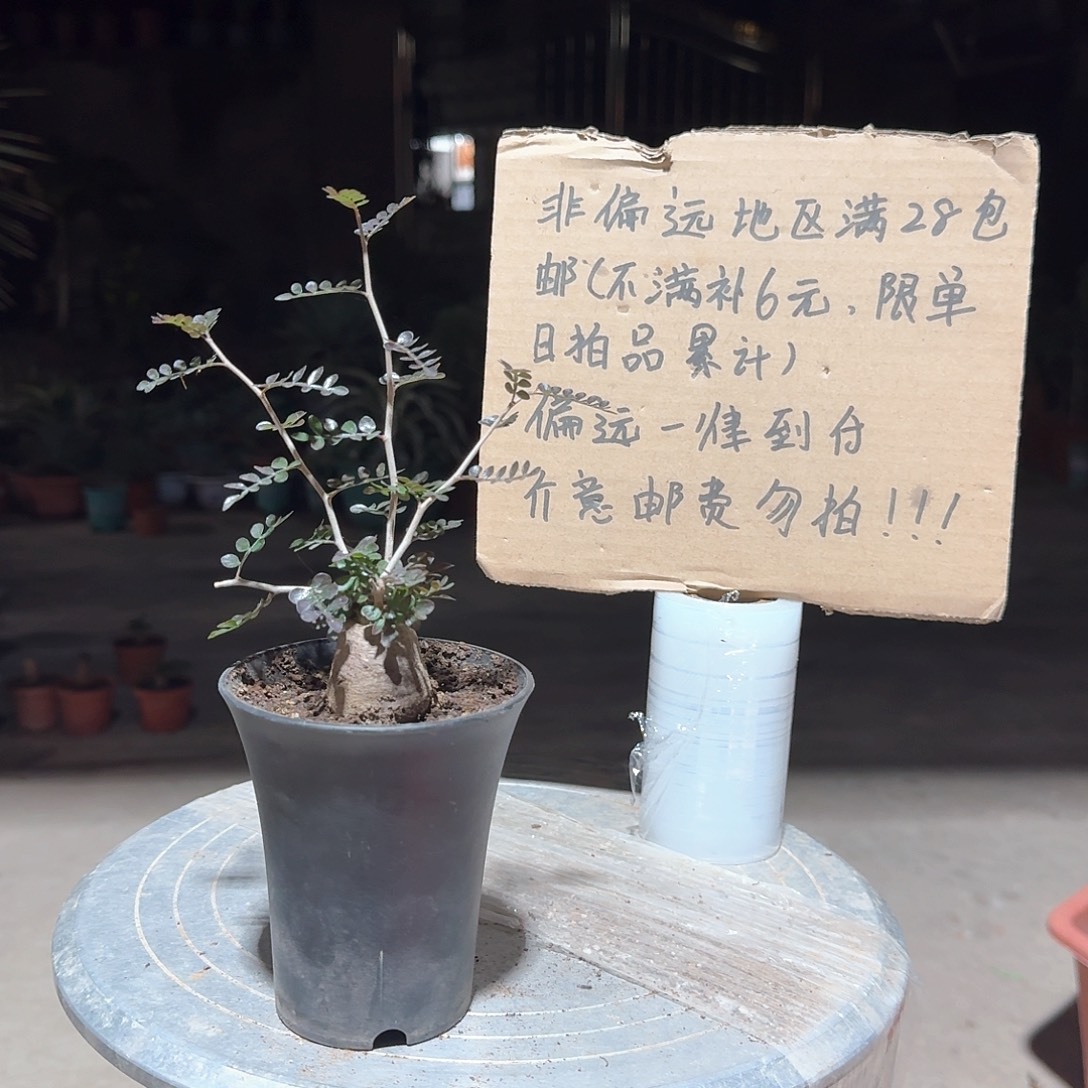 非偏远地区满28包
邮(不满补6元、限单
日拍品累计)
偏远一律到付
介意邮费勿拍!!!